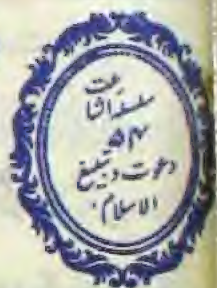 سلسلہ اشاعت
۵۴
دعوت و تبلیغ
الاسلام